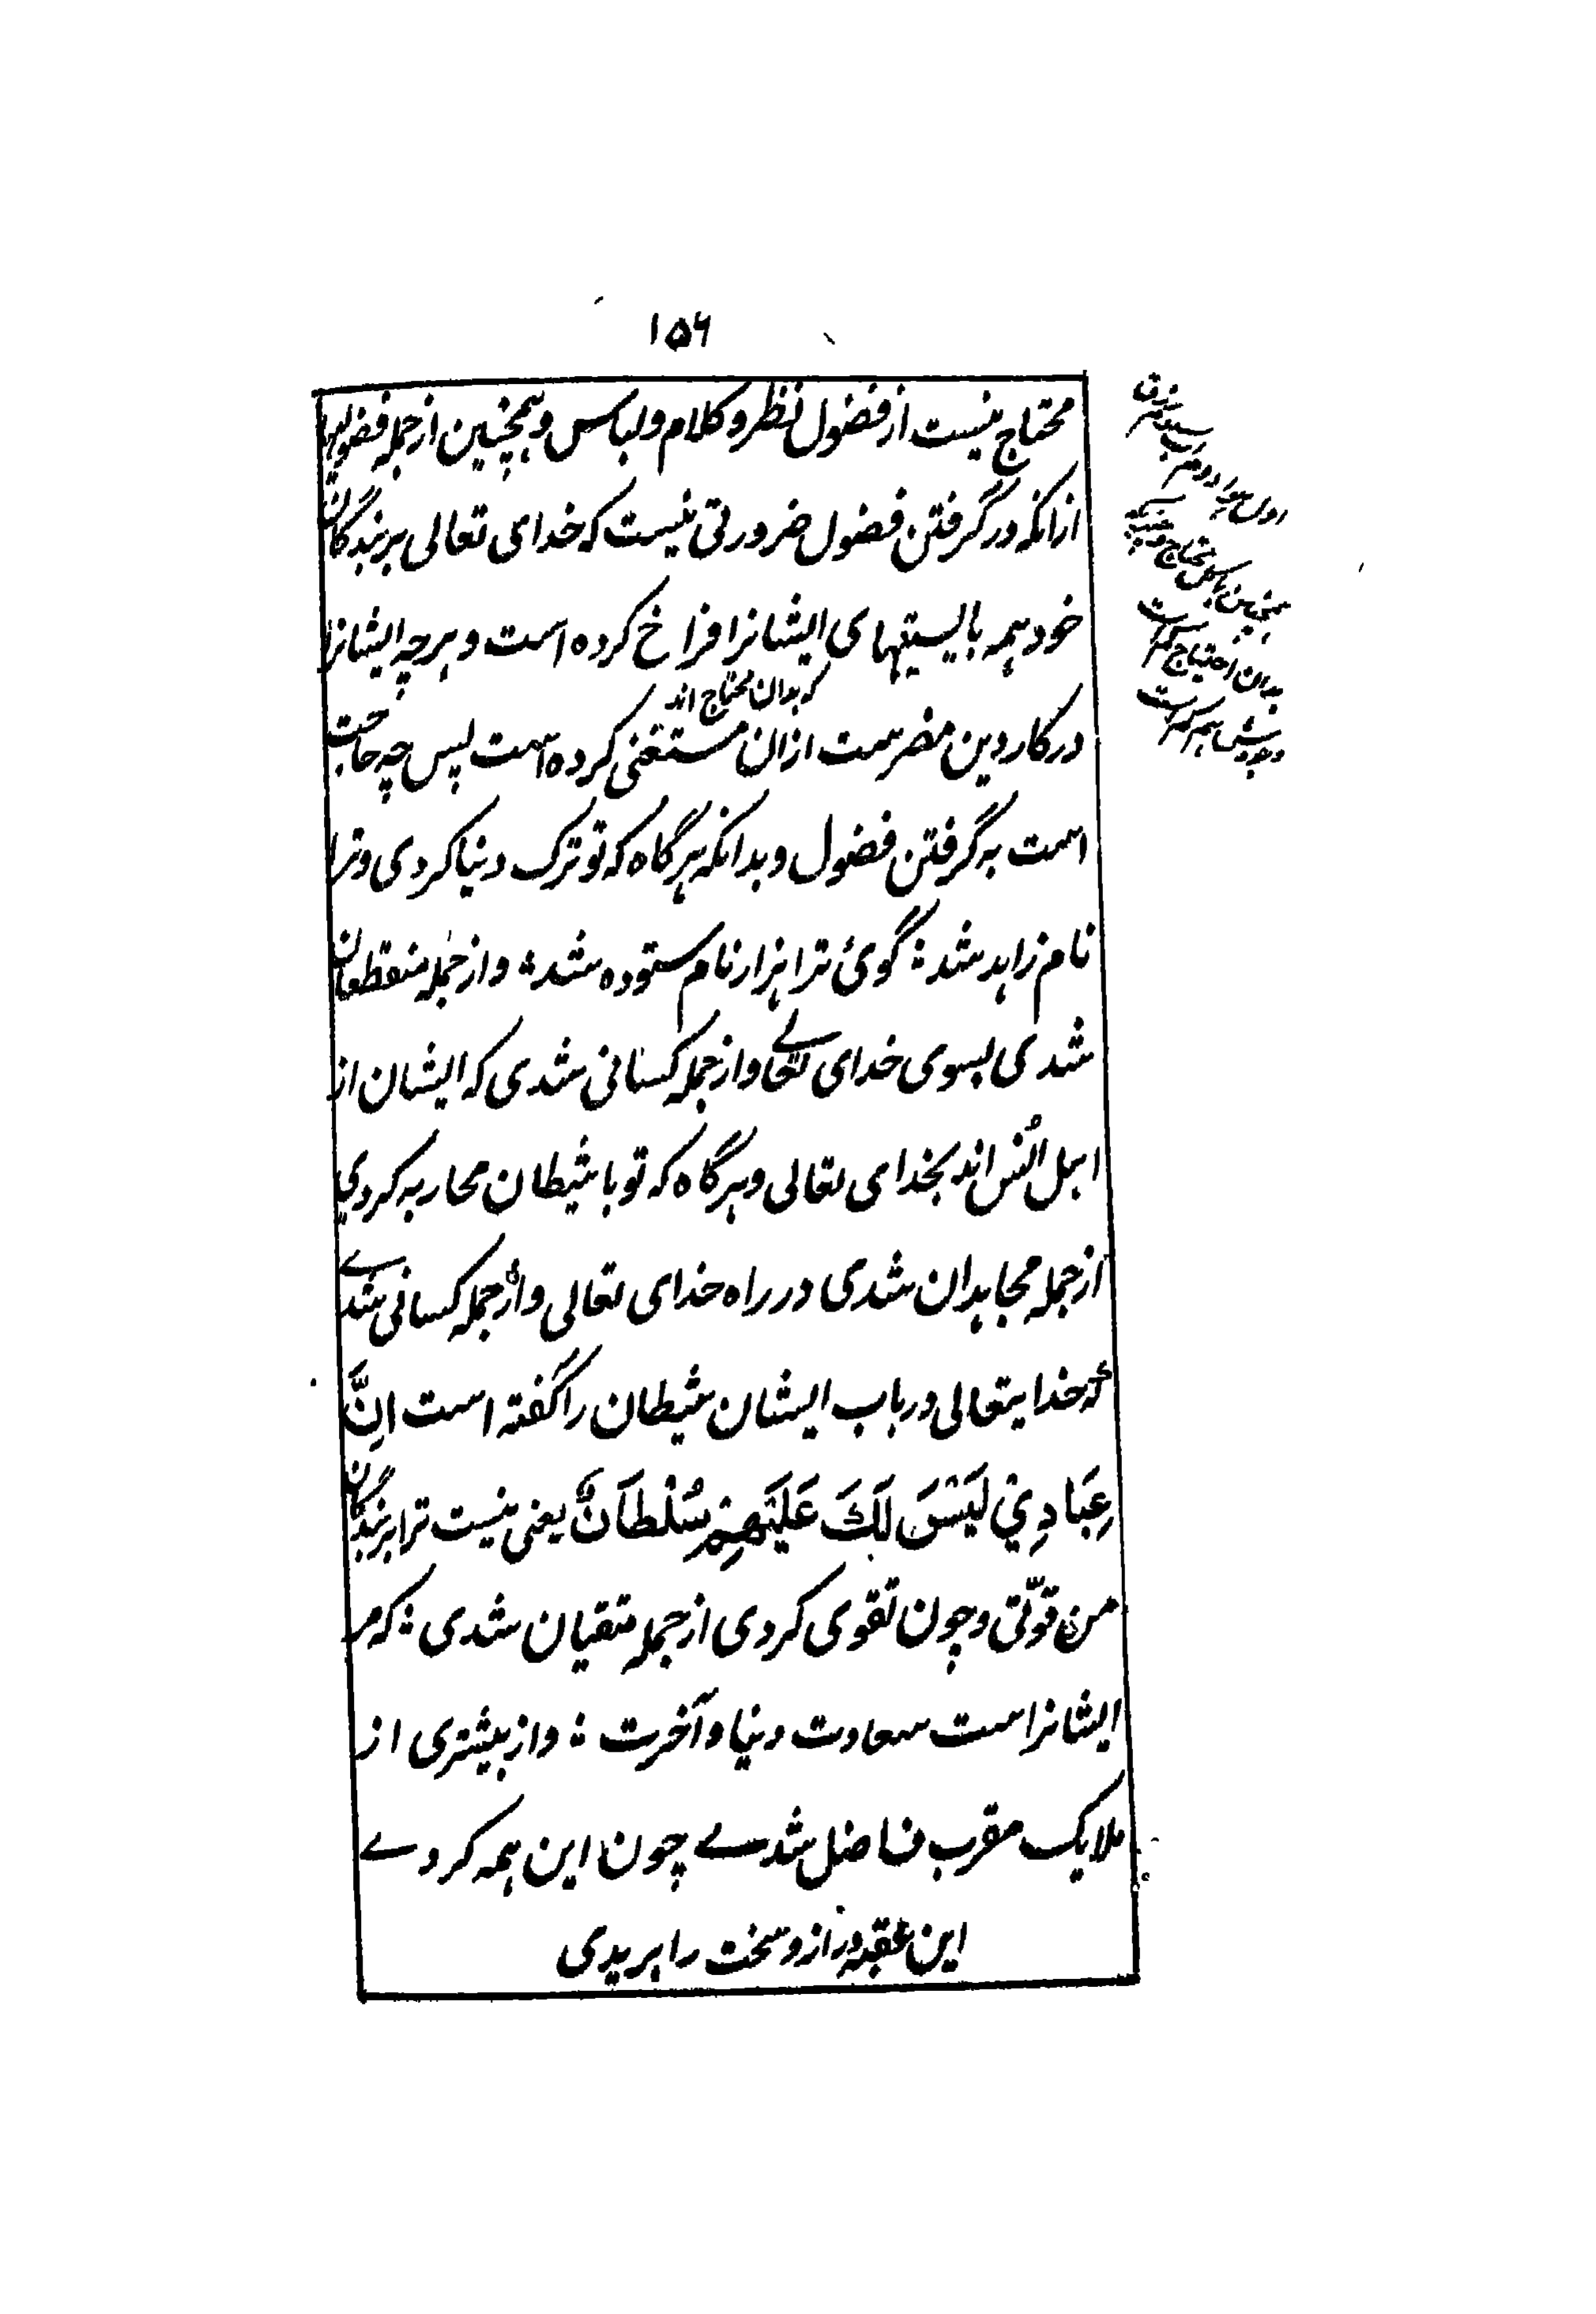 ۱۵۶
محتاج نیست از فضول نظر و کلام و لباس و همچنین از جمله فضولیها
ازانکه در گرفتن فضول ضرورتی نیست که خدای تعالی بر بندگان
خود همه بایستیهای ایشانرا فراخ کرده است و هرچه ایشانرا
که بدان محتاج اند
در کار دین مضرست ازان مستغنی کرده است پس چه حاجت
است به گرفتن فضول و بدانکه هرگاه که تو ترک دنیا کردی و ترا
نام زاهد شد ؛ گوئ ترا هزار نام ستوده شد ؛ و از جمله منقطعان
شدی بسوی خدای تعالے و از جمله کسانی شدی که ایشان از
اہل اُنس اند بخدای تعالی و هرگاه که تو با شیطان محاربه کردي
از جمله مجاهدان شدی در راه خدای تعالی و از جمله کسانی شدے
که خدایتعالی در باب ایشان شیطان را گفته است اِنَّ
عِبَادِيْ لَيْسَ لَكَ عَلَيْهِمْ سُلْطَانٌ یعنی نیست ترا بر بندگان
من قوّتی و چون تقوی کردی از جمله متقیان شدی ؛ که مر
ایشانراست سعادت دنیا و آخرت ؛ و از بیشتری از
ملایک مقرب فاضل شدے چون این همه کردے
این عقبه دراز و سخت را بریدی